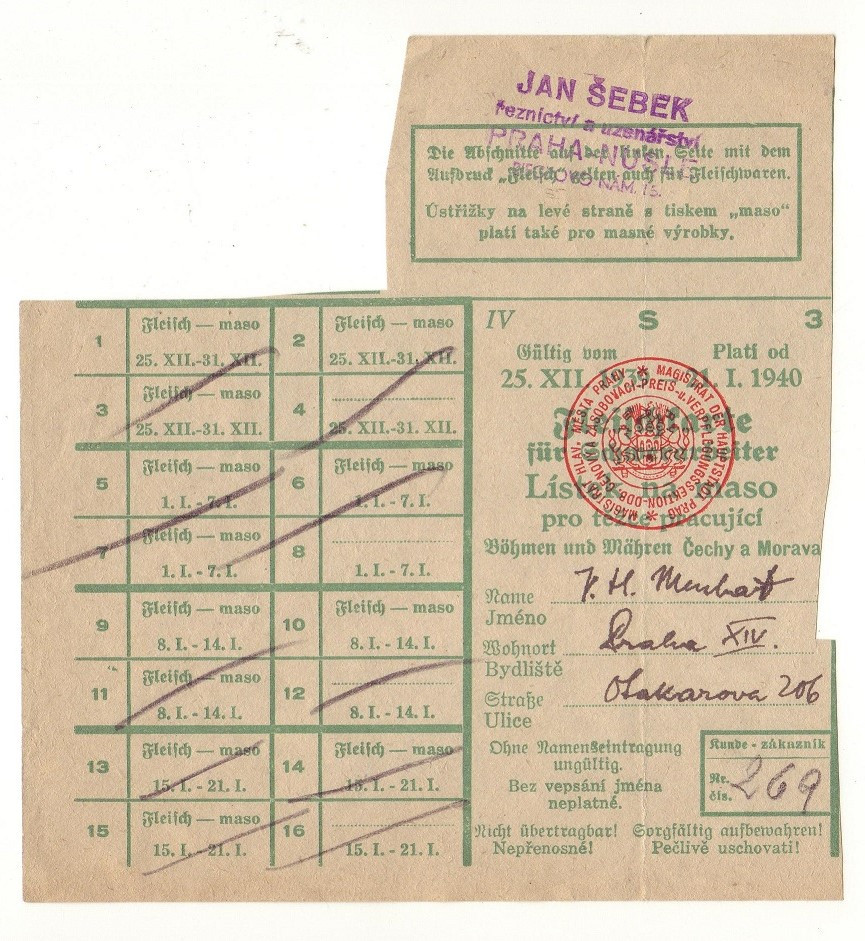 JAN ŠEBEK
řeznictví a uzenářství
PRAHA-NUSLE
NÁM. 15.
Die Abschnitte auf der linken Seite mit dem
Aufdruck „Fleisch“ gelten auch für Fleischwaren.
Ústřižky na levé straně s tiskem „maso“
platí také pro masné výrobky.
1 Fleisch — maso 25. XII.-31. XII.
2 Fleisch — maso 25. XII.-31. XII.
3 Fleisch — maso 25. XII.-31. XII.
4 25. XII.-31. XII.
5 Fleisch — maso 1. I. - 7. I.
6 Fleisch — maso 1. I. - 7. I.
7 Fleisch — maso 1. I. - 7. I.
8 1. I. - 7. I.
9 Fleisch — maso 8. I. - 14. I.
10 Fleisch — maso 8. I. - 14. I.
11 Fleisch — maso 8. I. - 14. I.
12 8. I. - 14. I.
13 Fleisch — maso 15. I. - 21. I.
14 Fleisch — maso 15. I. - 21. I.
15 Fleisch — maso 15. I. - 21. I.
16 15. I. - 21. I.
IV S 3
Gültig vom Platí od
25. XII. 1939 - 21. I. 1940
Fleischkarte
für Schwerarbeiter
Lístek na maso
pro těžce pracující
Böhmen und Mähren Čechy a Morava
MAGISTRAT DER HAUPTSTADT PRAG
MAGISTRÁT HLAV. MĚSTA PRAHY
PREIS- u. VERPFLEGUNGSSEKTION
Name
Jméno
Wohnort Praha XIV.
Bydliště
Straße Otakarova 206
Ulice
Ohne Namenseintragung
ungültig.
Bez vepsání jména
neplatné.
Kunde - zákazník
Nr.
čís. 269
Nicht übertragbar! Sorgfältig aufbewahren!
Nepřenosné! Pečlivě uschovati!